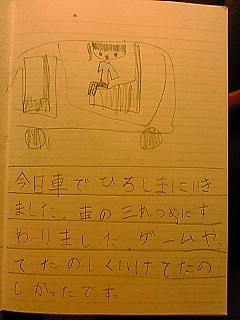 今日車でひろしまにいき
ました。車の三れつめにす
わりました。ゲームやっ
てたのしくいけてたの
しかったです。